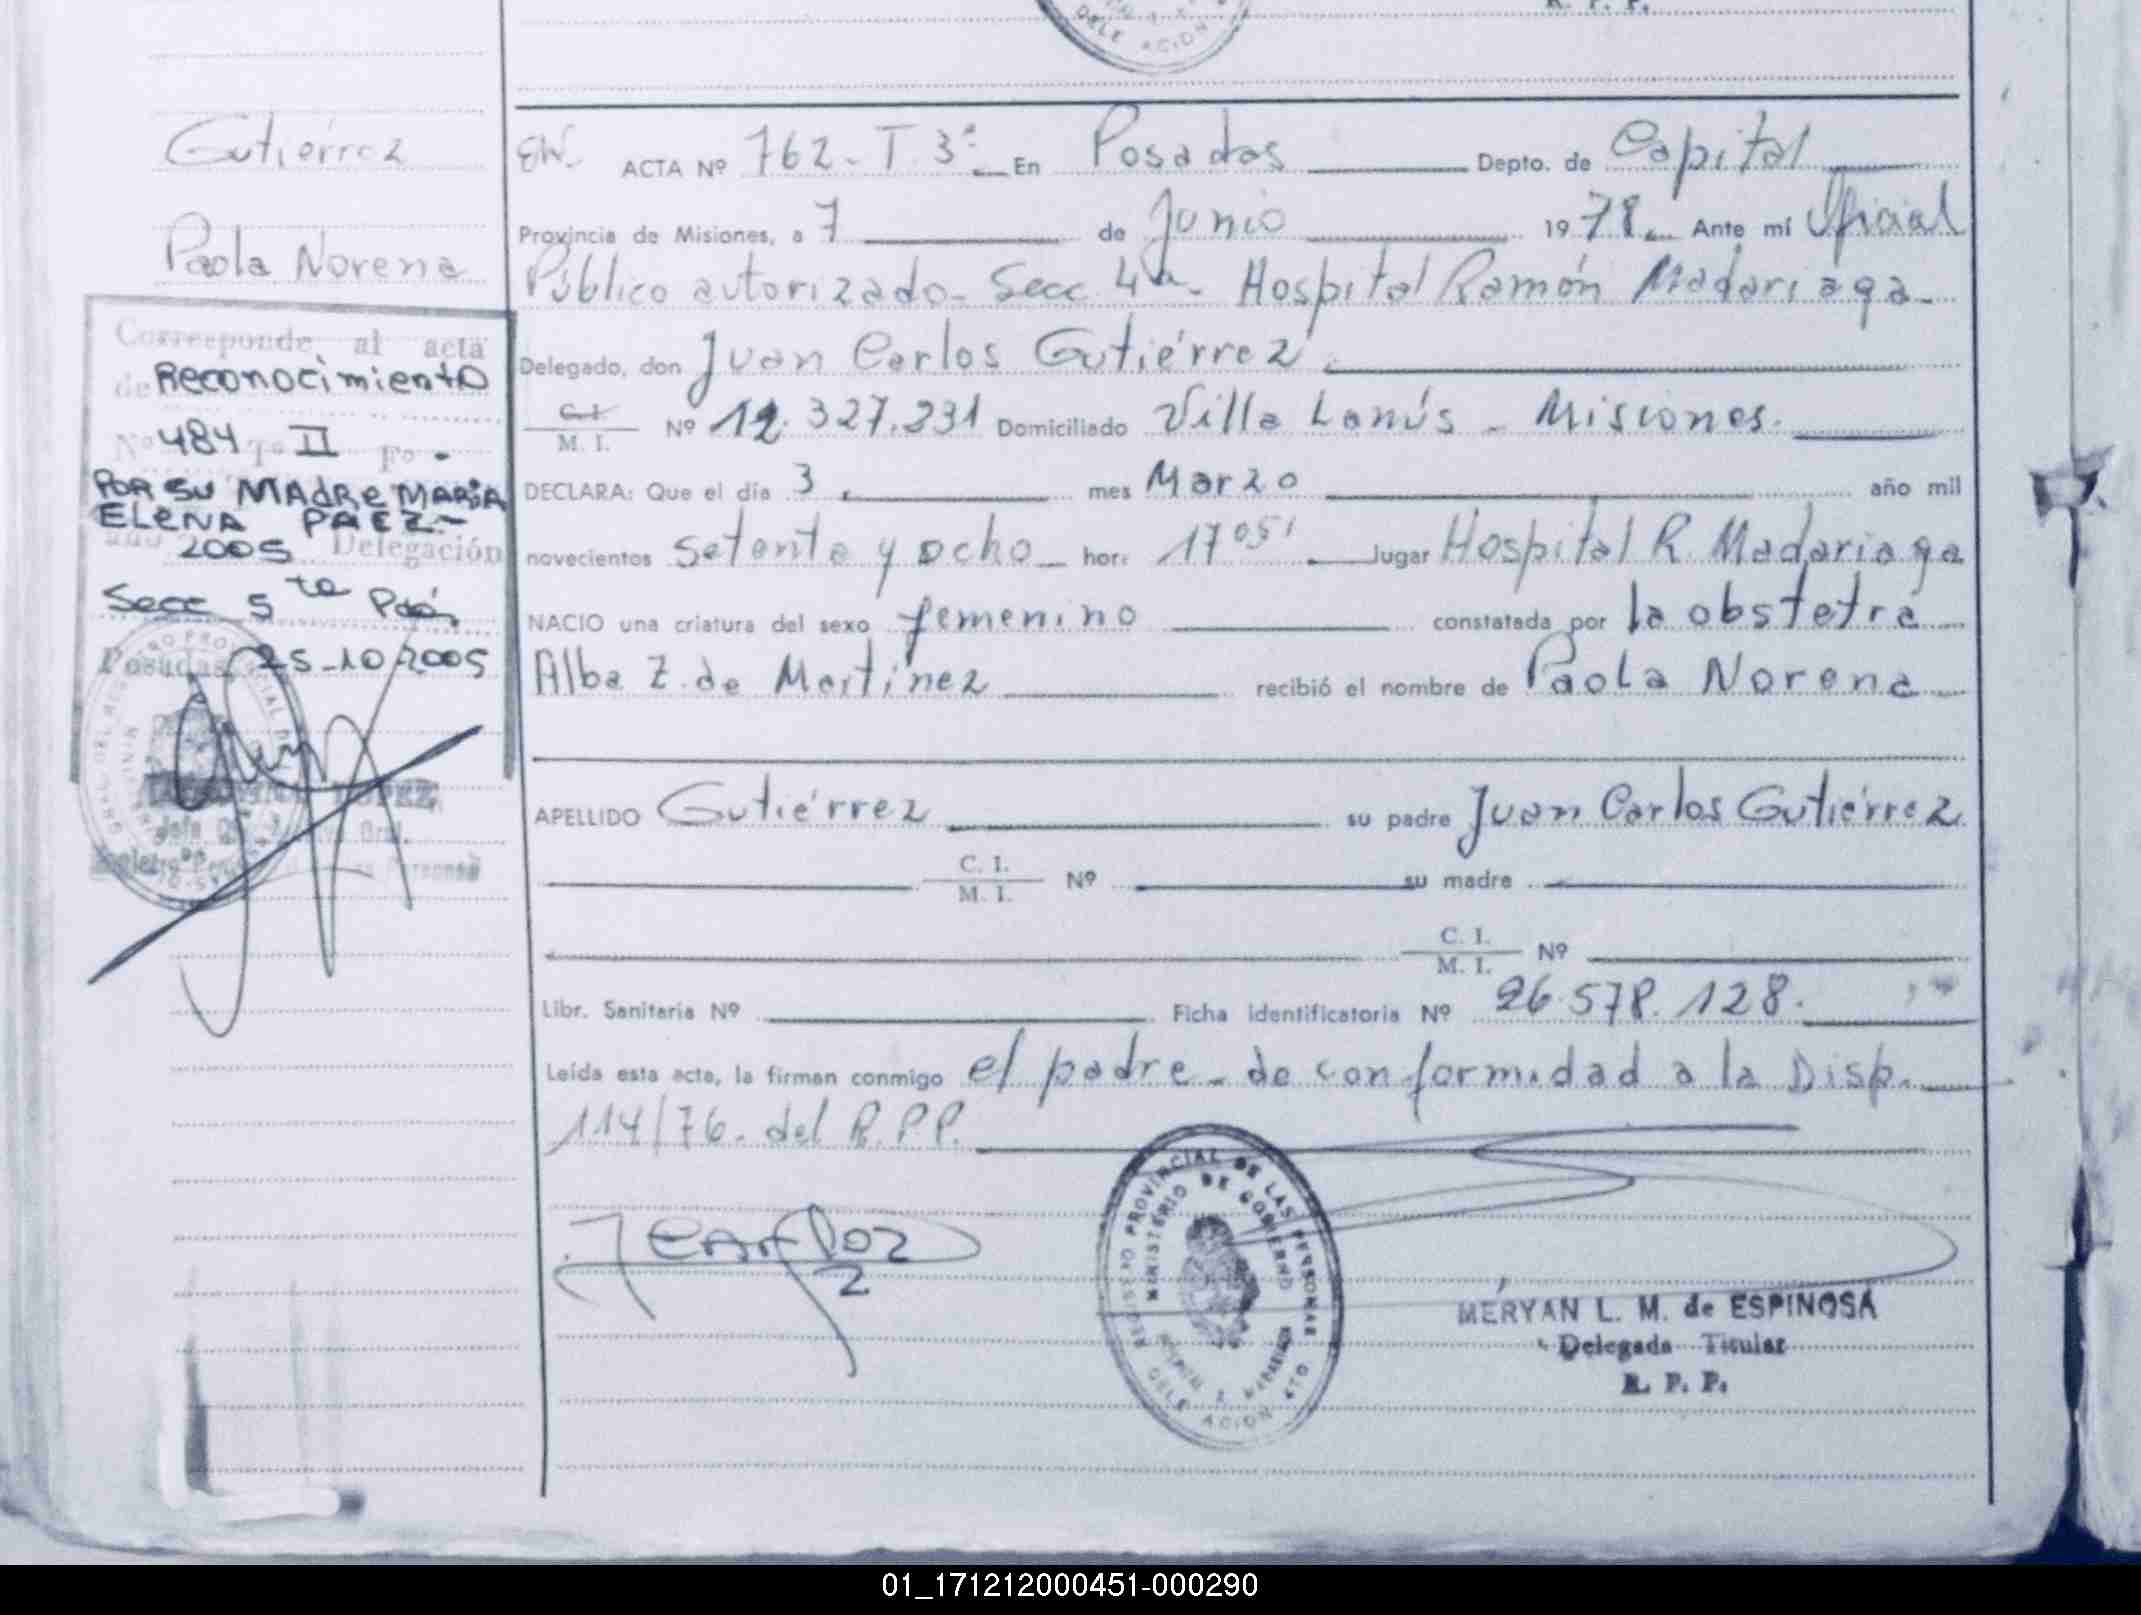 R. P. P.
DELE ACION
Gutiérrez
Paola Norena
EW. ACTA Nº 762 - T. 3ª En Posadas Depto. de Capital
Provincia de Misiones, a 7 de Junio 1978. Ante mí Oficial
Público autorizado - Secc. 4ta - Hospital Ramón Madariaga -
Delegado, don Juan Carlos Gutiérrez
C. I. / M. I. Nº 12.327.231 Domiciliado Villa Lanús - Misiones.
DECLARA: Que el día 3 mes Marzo año mil
novecientos setenta y ocho hora 17 05' lugar Hospital R. Madariaga
NACIO una criatura del sexo femenino constatada por la obstetra
Alba Z. de Martínez recibió el nombre de Paola Norena
APELLIDO Gutiérrez su padre Juan Carlos Gutiérrez
C. I. / M. I. Nº su madre
C. I. / M. I. Nº
Libr. Sanitaria Nº Ficha identificatoria Nº 26.578.128.
Leída esta acta, la firman conmigo el padre - de conformidad a la Disp.
114/76. del R.P.P.
Corresponde al acta
de Reconocimiento
Nº 484 Tº II Fº -
POR SU MADRE MARIA
ELENA PAEZ -
año 2005 Delegación
Secc 5ta Pdas
Posadas, 25-10-2005
REGISTRO PROVINCIAL DE LAS PERSONAS
MINISTERIO DE GOBIERNO
HOSPITAL R. MADARIAGA
DELE ACION 4TO
MERYAN L. M. de ESPINOSA
Delegada Titular
R. P. P.
01_171212000451-000290